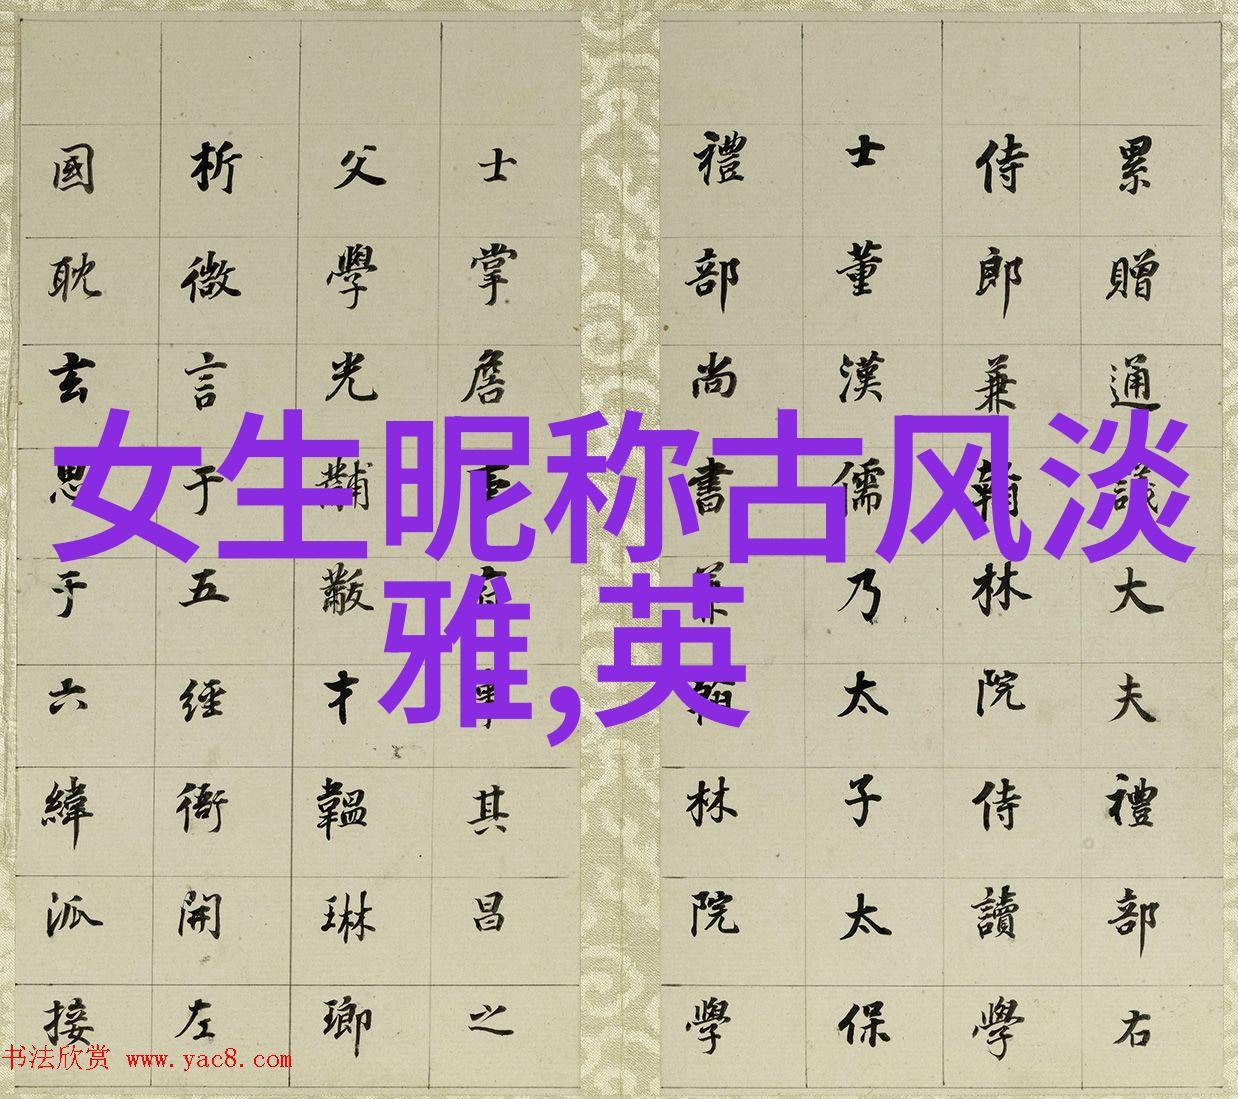 累贈通議大夫禮部右
侍郎兼翰林院侍讀學
士董漢儒乃太子太保
禮部尚書兼翰林院學
士掌詹事府事其昌之
父學光黼黻才韞琳瑯
析微言于五經衙開左
國耽玄思于六緯派接
女生昵称古风淡
雅,英
书法欣赏 www.yac8.com